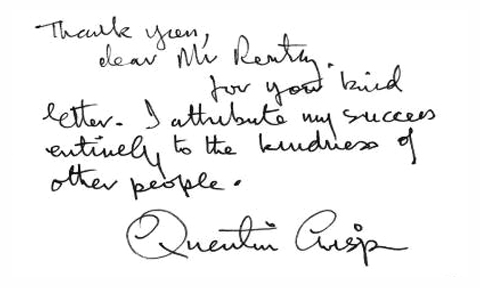 Thank you,
dear Mr
for your kind
letter. I attribute my success
entirely to the kindness of
other people.
Quentin Crisp